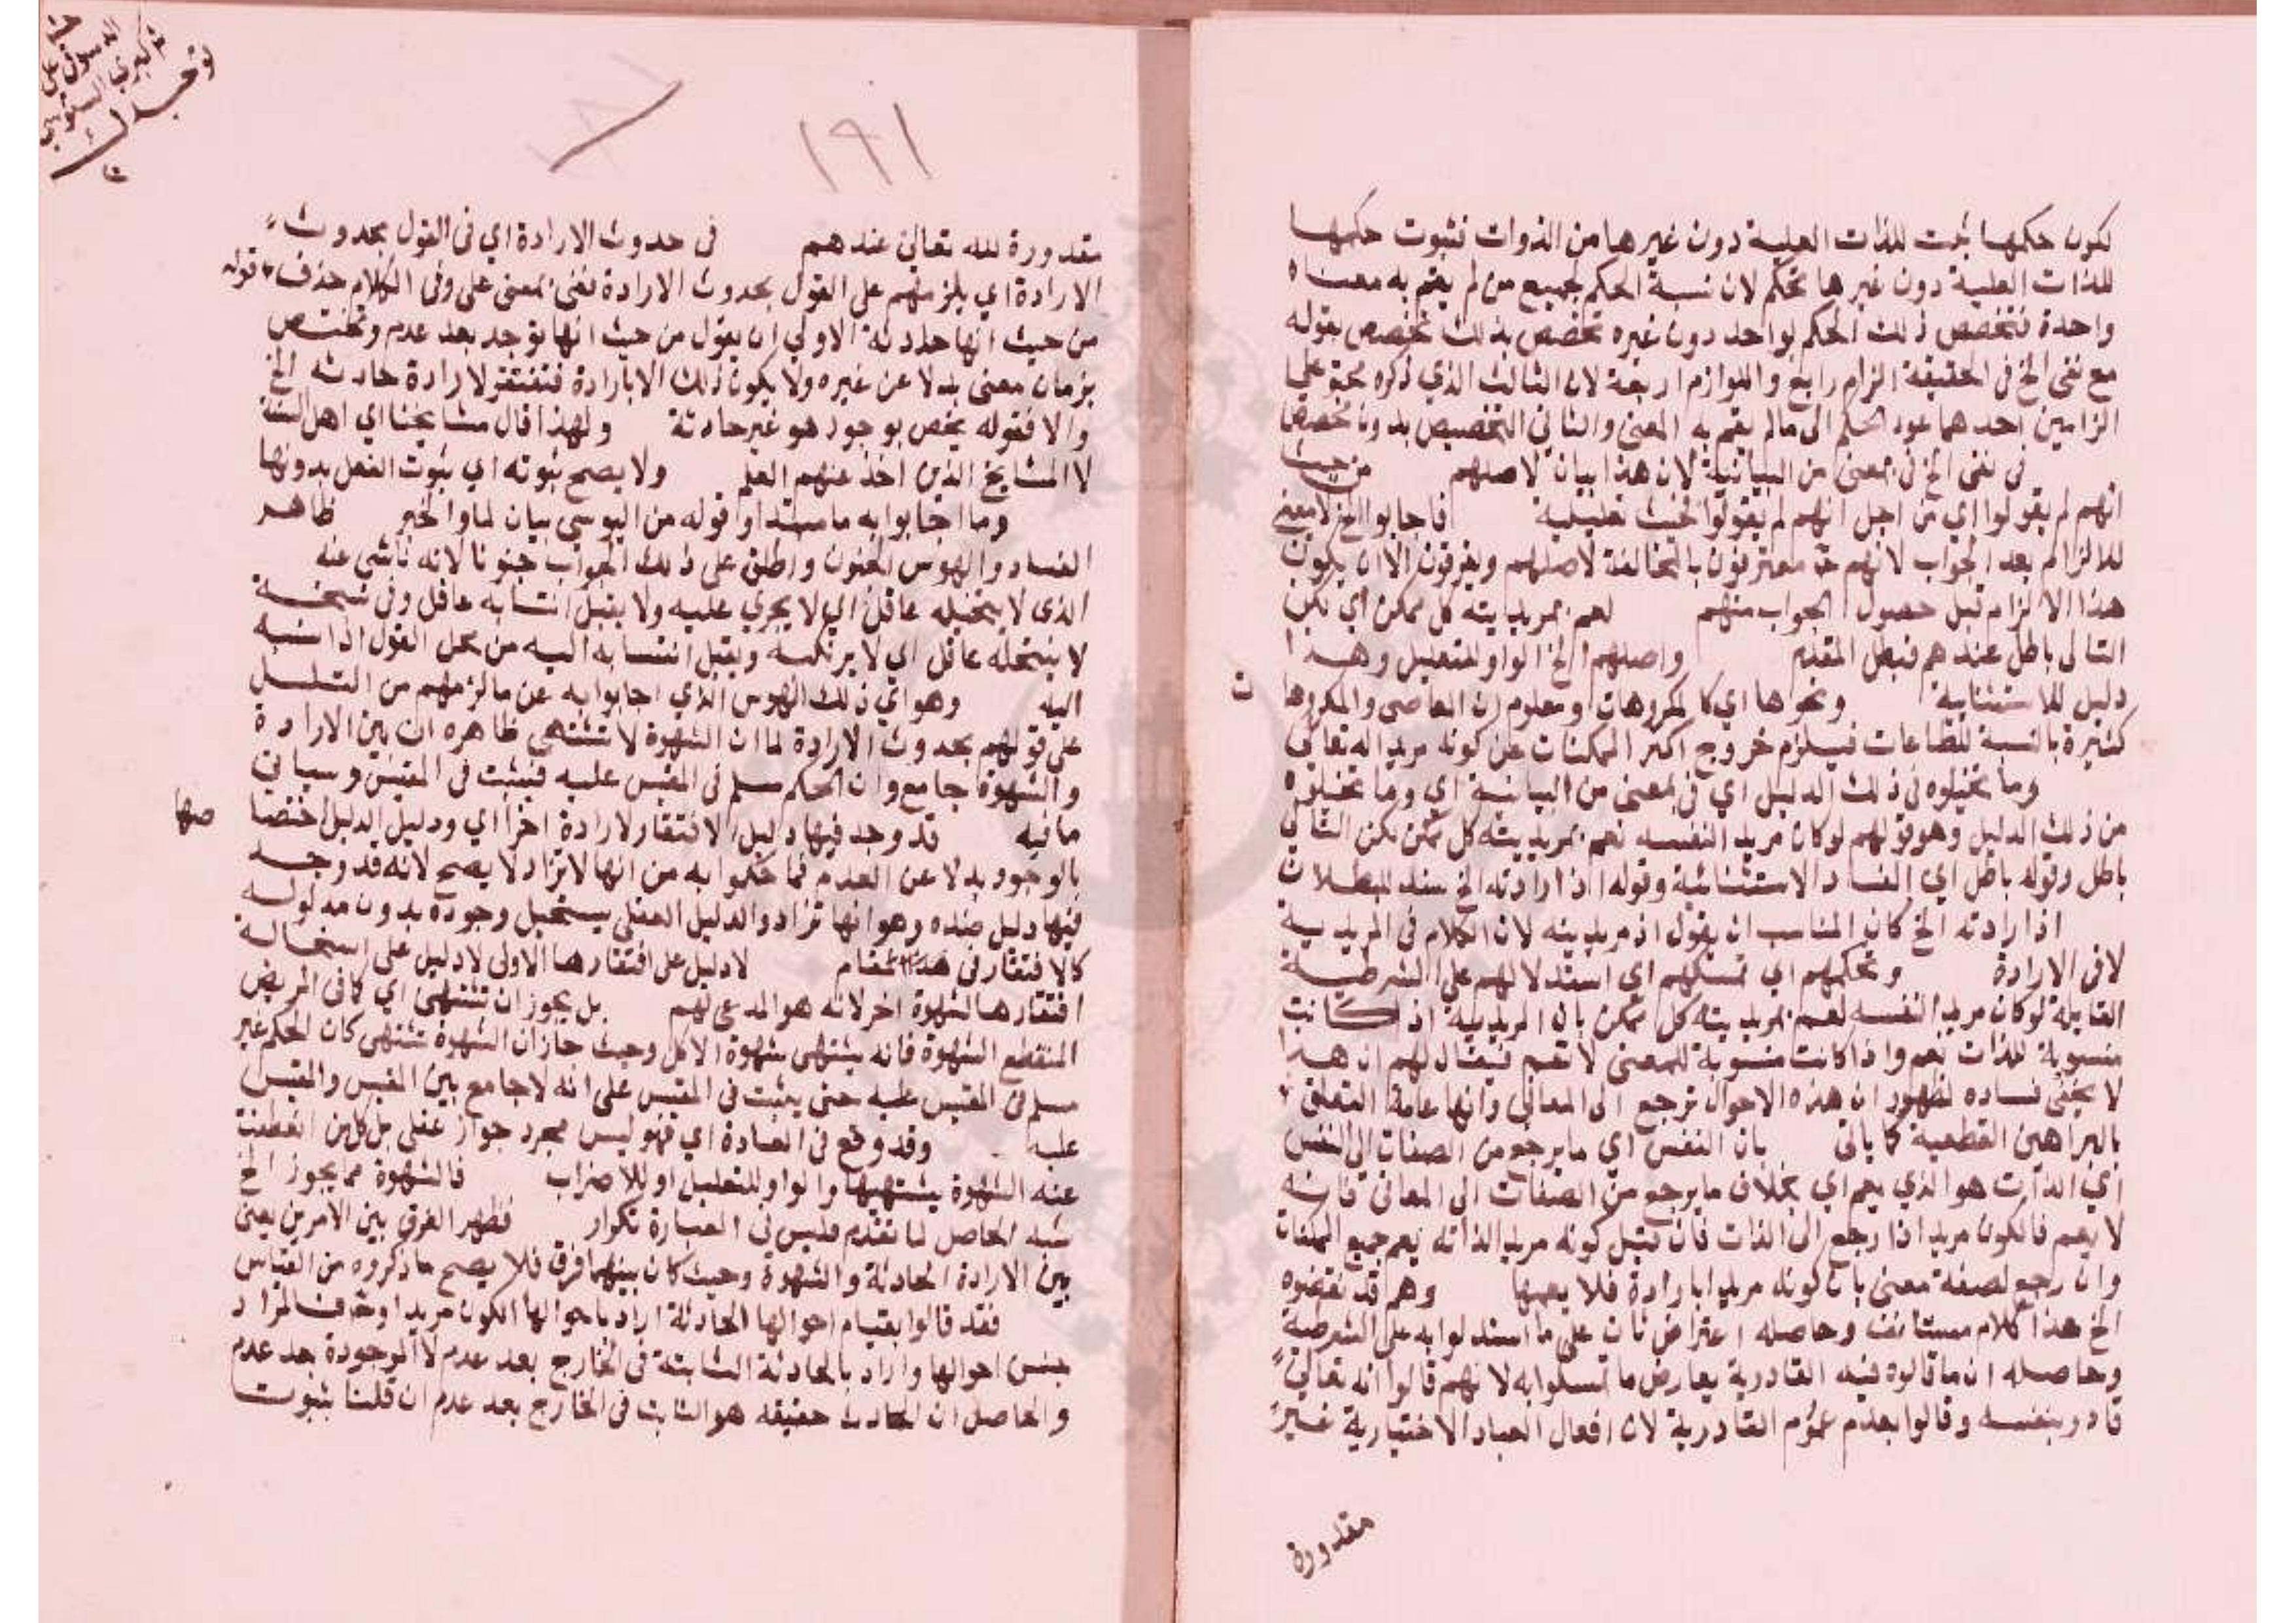 لكون حكمها يثبت للذات العلية دون غيرها من الذوات فثبوت حكمها
للذات العلية دون غيرها تحكم لان نسبة الحكم لجميع من لم يقم به معناه
واحدة فتخصص ذلك الحكم بواحد دون غيره تخصص بذلك تخصص بقوله
مع نفى الخ فى الحقيقة الزام رابع واللوازم اربعة لان الثالث الذي ذكره محتو علي
الزامين احدهما عود الحكم الى ما لم يقم به المعنى والثاني التخصيص بدون تخصص
فى نفى الخ فى بمعنى من البيانية لان هذا بيان لاصلهم من حيث
انهم لم يقولوا اي من اجل انهم لم يقولوا فحيث تعليلية فاجابوا الخ لا معنى
للالزام بعد الجواب لانهم معترفون بالمخالفة لاصلهم ويفرقون الا ان يكون
هذا الالزام قبل حصول الجواب منهم لعم بمريديته كل ممكن اي لكن
التالى باطل عندهم فبطل المقدم واصلهم الخ الواو للتعليل وهذا
دليل للاستثنائية ونحوها اي كالمكروهات ومعلوم ان المعاصى والمكروها
ت
كثيرة بالنسبة للطاعات فيلزم خروج اكثر الممكنات عن كونه مريدا له تعالى
وما تخيلوه فى ذلك الدليل اي فى بمعنى من البيانية اي وما تخيلوه
من ذلك الدليل وهو قولهم لو كان مريد النفسه لعم بمريديته كل ممكن لكن التالي
باطل وقوله باطل اي الفساد الاستثنائية وقوله اذ ارادته الخ سند للبطلان
اذ ارادته الخ كان المناسب ان يقول اذ مريديته لان الكلام فى المريدية
لا فى الارادة وتحكمهم اي تمسكهم اي استدلالهم علي الشرطية
القايلة لو كان مريد النفسه لعم بمريديته كل ممكن بان المريدية اذا كانت
منسوبة للذات تعم واذا كانت منسوبة للمعنى لا تعم فيقال لهم ان هذا
لا يخفى فساده لظهور ان هذه الاحوال ترجع الى المعانى وانها عامة التعلق
بالبراهين القطعية كما ياتى بان النفس اي ما يرجع من الصفات الى النفس
اي الذات هو الذي يعم اي بخلاف ما يرجع من الصفات الى المعانى فانه
لا يعم فالكون مريدا اذا رجع الى الذات فان قيل كونه مريدا لذاته يعم جميع الممكنات
وان رجع لصفة معنى بان كونه مريدا بارادة فلا يعمها وهم قد نقضوه
الخ هذا كلام مستانف وحاصله اعتراض ثان على ما استدلوا به على الشرطية
وحاصله ان ما قالوه فيه القادرية يعارض ما تمسكوا به لانهم قالوا انه تعالى
قادر بنفسه وقالوا بعدم عموم القادرية لان افعال العباد الاختيارية غير
مقدورة
١٩١
مقدورة لله تعالى عندهم فى حدوث الارادة اي فى القول بحدوث
الارادة اي يلزمهم على القول بحدوث الارادة ففى بمعنى على وفى الكلام حذف قوله
من حيث انها حادثة الاولي ان يقول من حيث انها توجد بعد عدم وتختص
بزمان معنى بدلا عن غيره ولا يكون ذلك الا بارادة فتفتقر لارادة حادثة الخ
والا فقوله يخص بوجود هو غير حادثة ولهذا قال مشايخنا اي اهل السنة
لا المشايخ الذين اخذ عنهم العلم ولا يصح ثبوته اي ثبوت الفعل بدونها
وما اجابوا به ما مبتدا وقوله من الهوس بيان لما والخبر ظاهر
الفساد والهوس الجنون واطلق على ذلك الجواب جنونا لانه ناشى عنه
الذى لا يتخيله عاقل اي لا يجري عليه ولا يقبل انتسابه عاقل وفى نسخة
لا ينتحله عاقل اي لا يرتكبه ويقبل انتسابه اليه من نحل القول اذا نسبه
اليه وهو اي ذلك الهوس الذي اجابوا به عن ما لزمهم من التسلسل
على قولهم بحدوث الارادة لما ان الشهوة لا تشتهى ظاهره ان بين الارادة
والشهوة جامع وان الحكم مسلم فى المقيس عليه فيثبت فى المقيس وسياتى
ما فيه قد وجد فيها دليل الافتقار لارادة اخرا اي ودليل الدليل اختصا
صها
بالوجود بدلا عن العدم فما حكموا به من انها لا تراد لا يصح لانه قد وجد
فيها دليل ضده وهو انها تراد والدليل العقلى يستحيل وجوده بدون مدلوله
كالافتقار فى هذا المقام لا دليل على افتقارها الاولى لا دليل على استحالة
افتقارها لشهوة اخر لانه هو المدعى لهم بل يجوز ان تشتهى اي كما فى المريض
المنقطع الشهوة فانه يشتهى شهوة الاكل وحيث جاز ان الشهوة تشتهى كان الحكم غير
مسلم فى المقيس عليه حتى يثبت فى المقيس على انه لا جامع بين المقيس والمقيس
عليه وقد وقع فى العادة اي فهو ليس مجرد جواز عقلى بل كل من انقطعت
عنه الشهوة يشتهيها والواو للتعليل او للاضراب فالشهوة مما يجوز الخ
شبه الحاصل لما تقدم فليس فى العبارة تكرار فظهر الفرق بين الامرين يعنى
بين الارادة الحادثة والشهوة وحيث كان بينهما فرق فلا يصح ما ذكروه من القياس
فقد قالوا بقيام احوالها الحادثة اراد باحوالها الكون مريدا وحرف المراد
جنس احوالها واراد بالحادثة الثابتة فى الخارج بعد عدم لا الموجودة بعد عدم
والحاصل ان الحادث حقيقة هو الثابت فى الخارج بعد عدم ان قلنا بثبوت